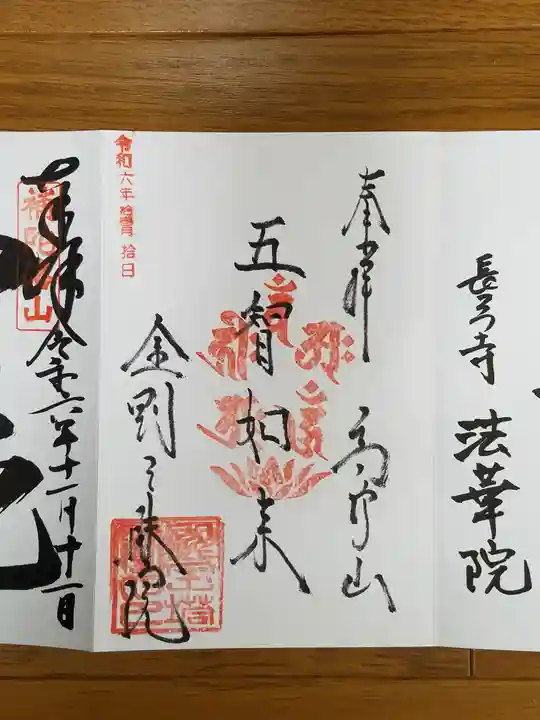 長弓寺
法華院
奉拝
高野山
五智如来
金剛三昧院
令和六年拾壹月拾日
奉拝
令和六年十一月十一日